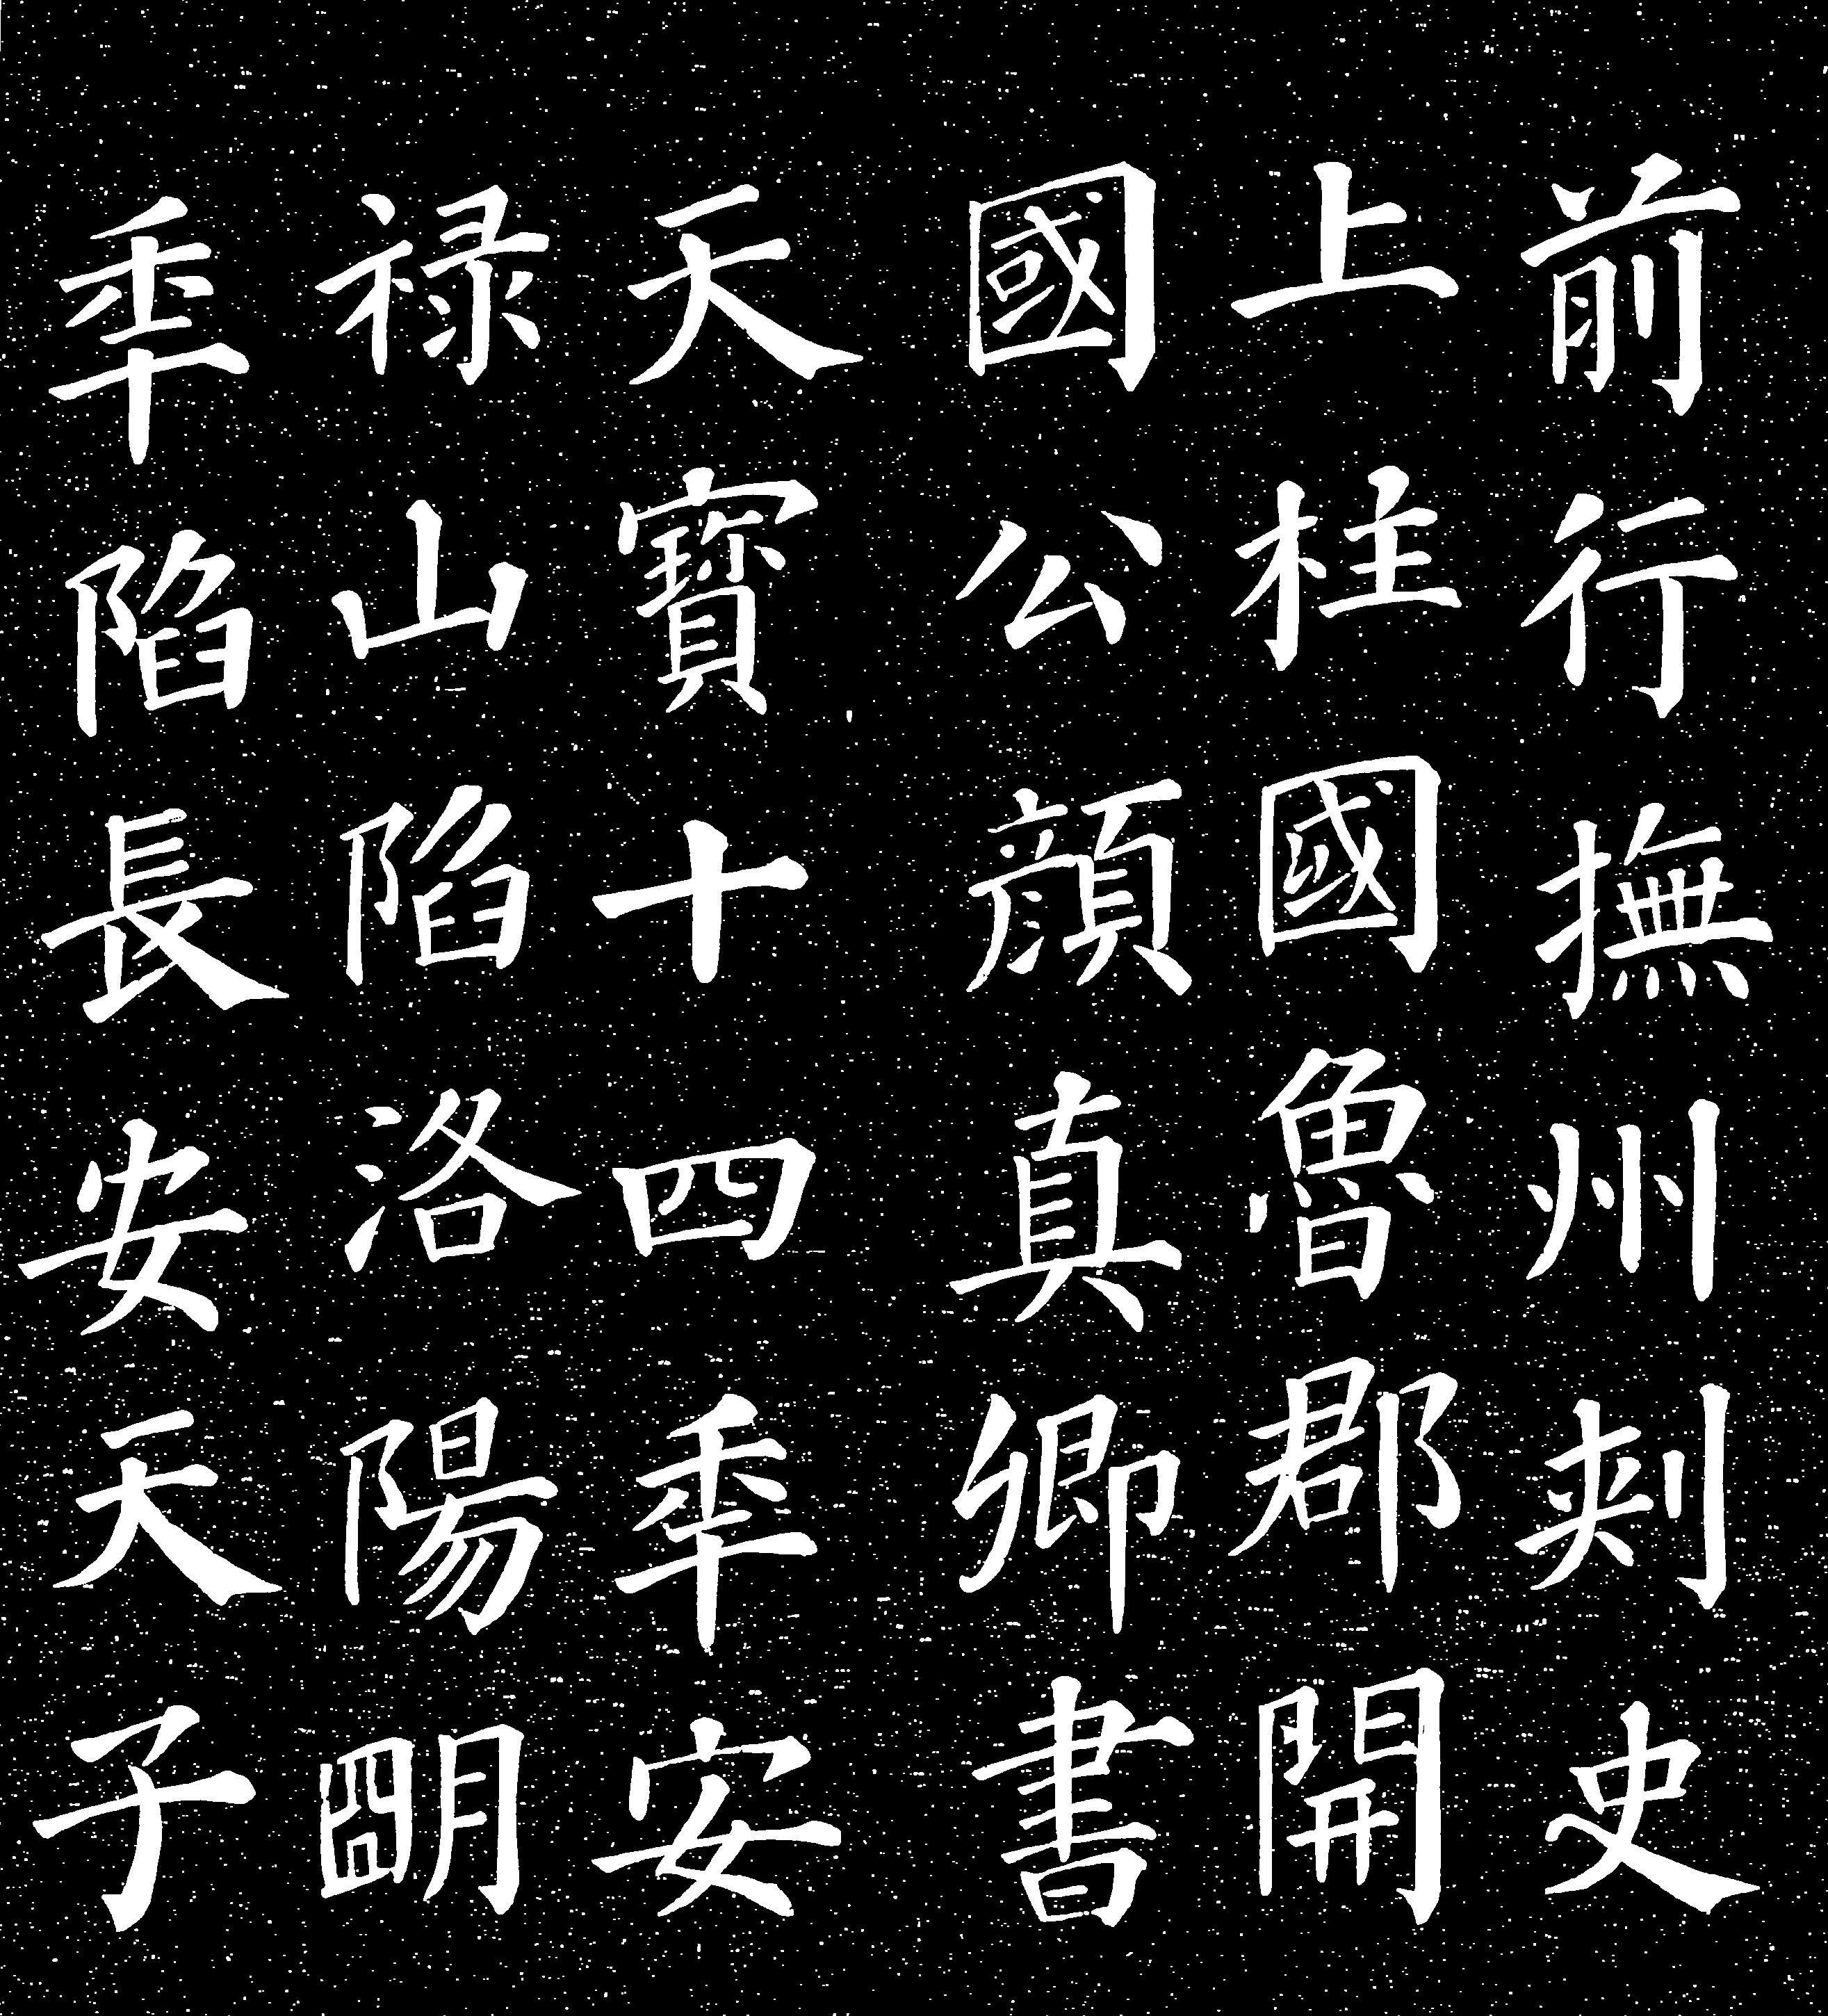 前行撫州刾史
上柱國魯郡開
國公顔真卿書
天寶十四秊安
禄山陷洛陽朙
秊陷長安天子